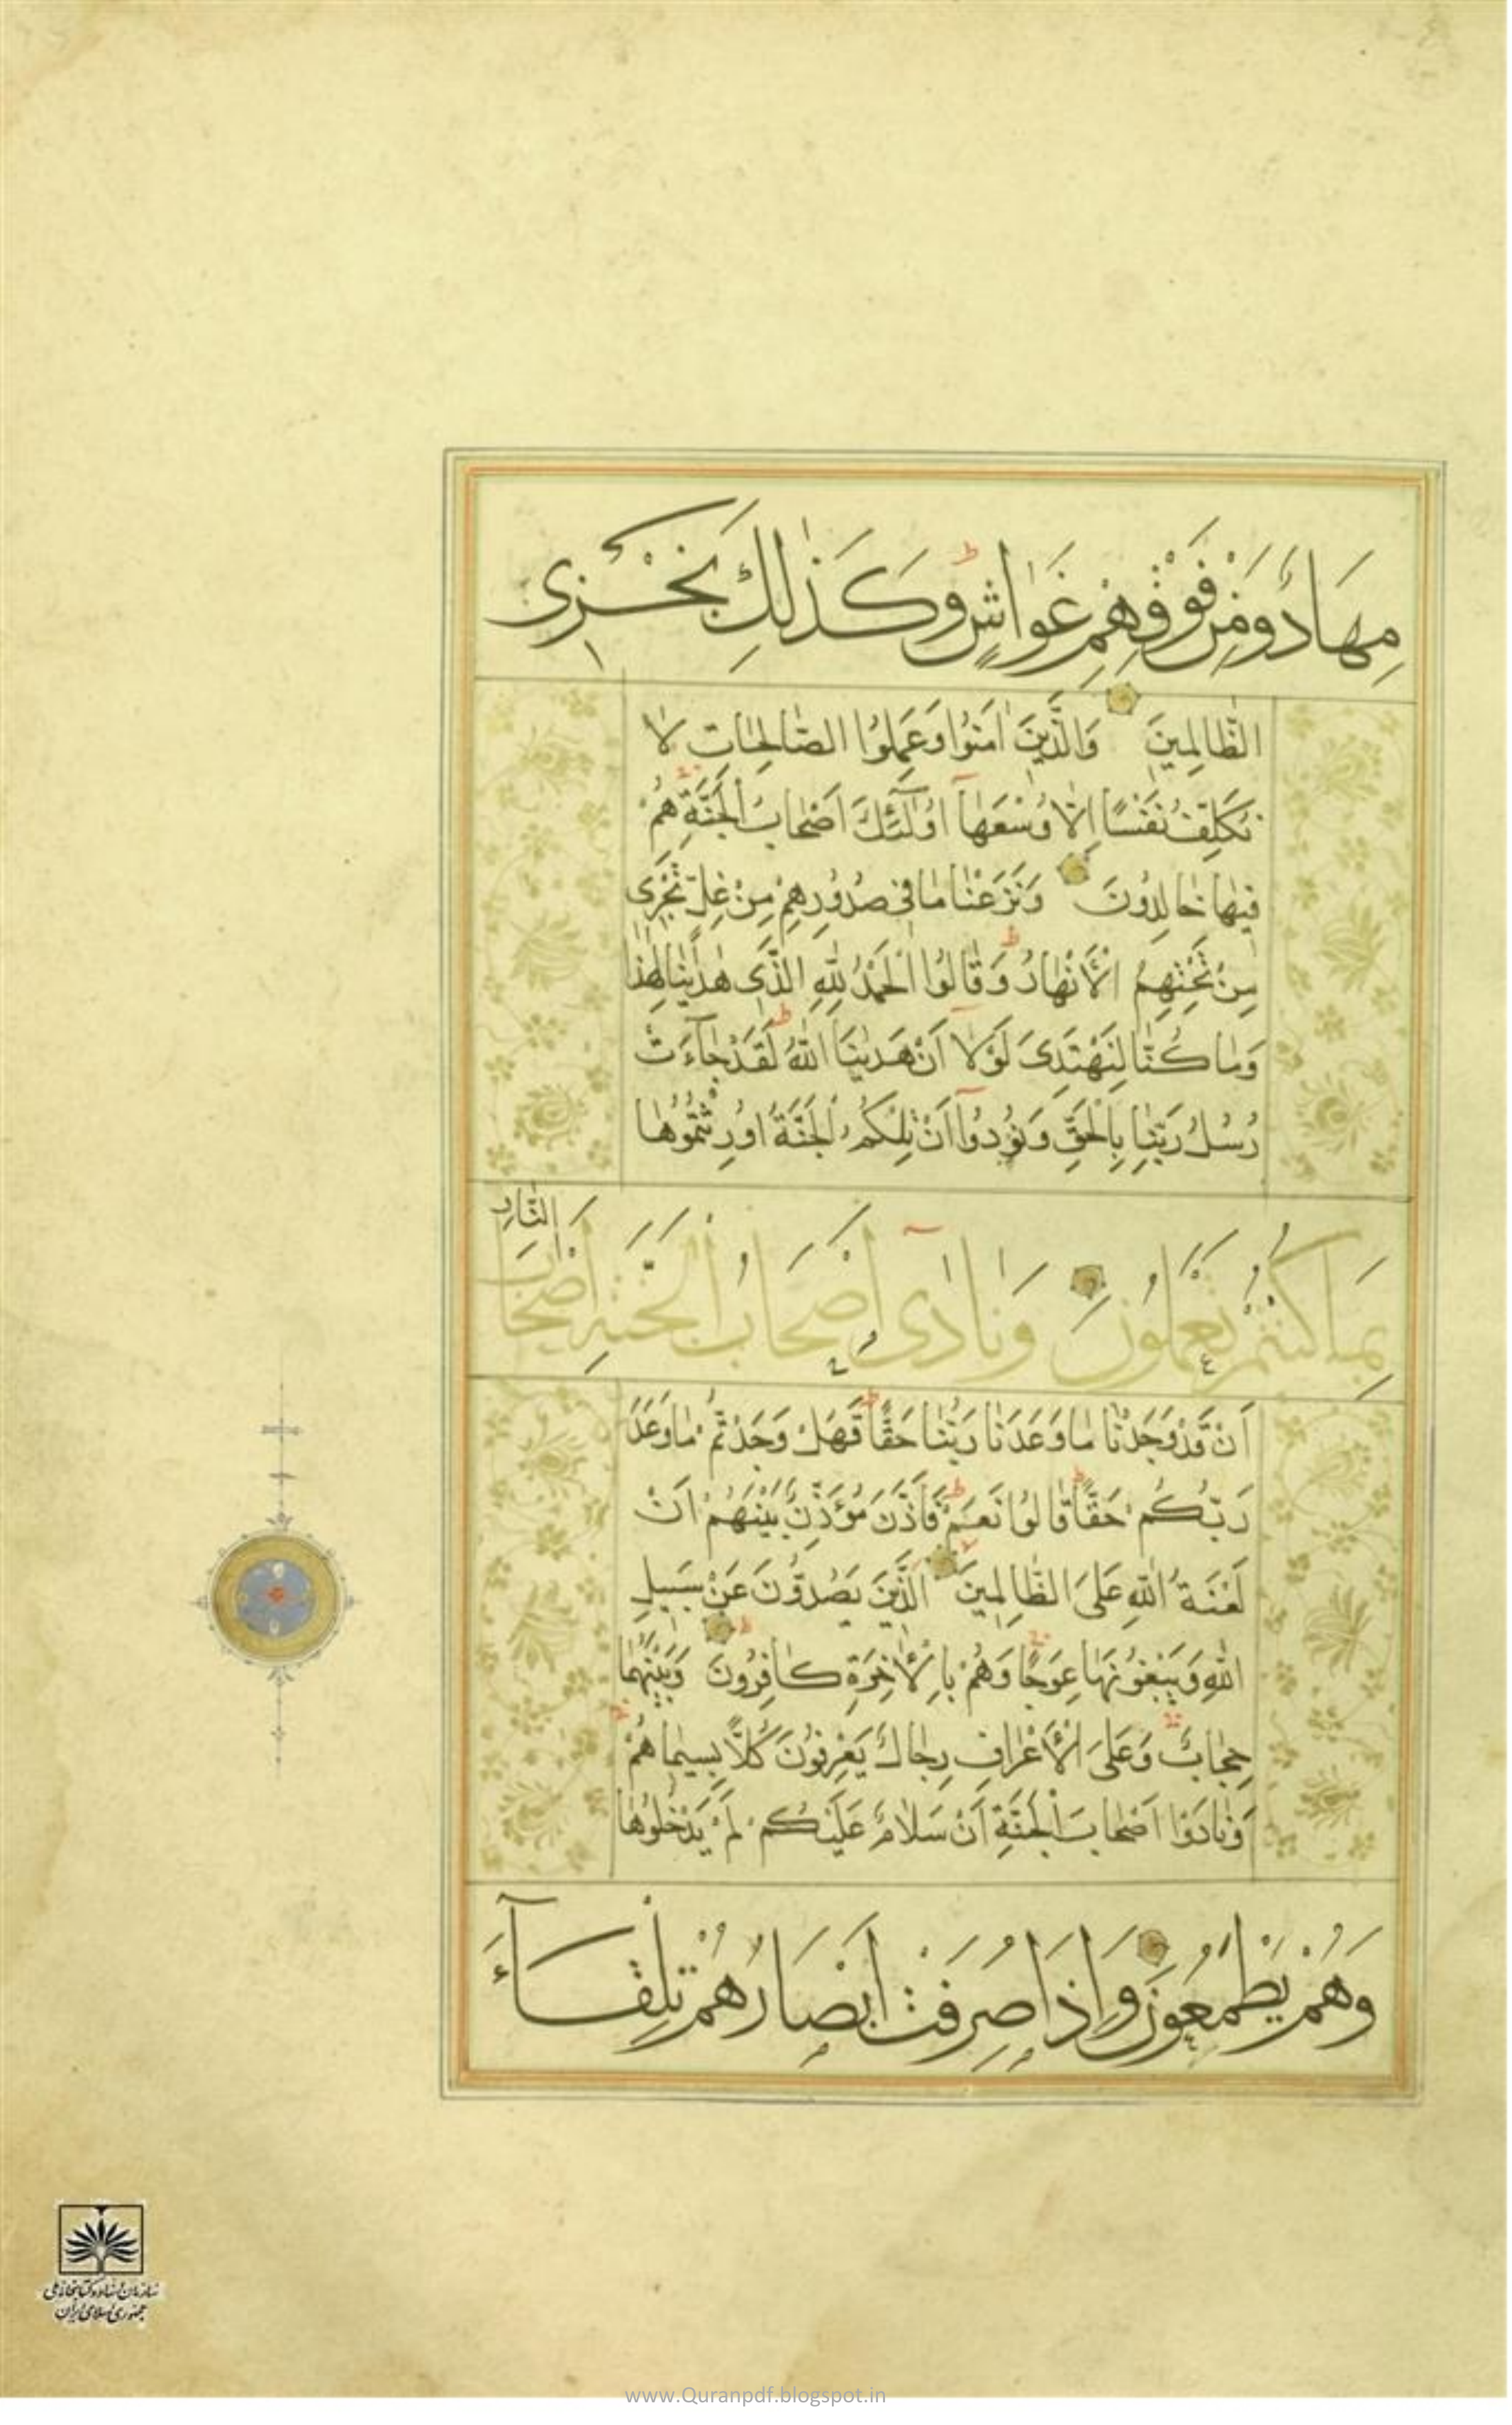 مِهَادٌ وَمِنْ فَوْقِهِمْ غَوَاشٍ وَكَذٰلِكَ نَجْزِى
الظَّالِمِينَ وَالَّذِينَ اٰمَنُوا وَعَمِلُوا الصَّالِحَاتِ لَا
نُكَلِّفُ نَفْسًا اِلَّا وُسْعَهَا اُولٰٓئِكَ اَصْحَابُ الْجَنَّةِ هُمْ
فِيهَا خَالِدُونَ وَنَزَعْنَا مَا فِى صُدُورِهِمْ مِنْ غِلٍّ تَجْرِى
مِنْ تَحْتِهِمُ الْاَنْهَارُ وَقَالُوا الْحَمْدُ لِلّٰهِ الَّذِى هَدٰينَا لِهٰذَا
وَمَا كُنَّا لِنَهْتَدِىَ لَوْلَا اَنْ هَدٰينَا اللّٰهُ لَقَدْ جَآءَتْ
رُسُلُ رَبِّنَا بِالْحَقِّ وَنُودُوا اَنْ تِلْكُمُ الْجَنَّةُ اُورِثْتُمُوهَا
بِمَا كُنْتُمْ تَعْمَلُونَ وَنَادٰى اَصْحَابُ الْجَنَّةِ اَصْحَابَ النَّارِ
اَنْ قَدْ وَجَدْنَا مَا وَعَدَنَا رَبُّنَا حَقًّا فَهَلْ وَجَدْتُمْ مَا وَعَدَ
رَبُّكُمْ حَقًّا قَالُوا نَعَمْ فَاَذَّنَ مُؤَذِّنٌ بَيْنَهُمْ اَنْ
لَعْنَةُ اللّٰهِ عَلَى الظَّالِمِينَ الَّذِينَ يَصُدُّونَ عَنْ سَبِيلِ
اللّٰهِ وَيَبْغُونَهَا عِوَجًا وَهُمْ بِالْاٰخِرَةِ كَافِرُونَ وَبَيْنَهُمَا
حِجَابٌ وَعَلَى الْاَعْرَافِ رِجَالٌ يَعْرِفُونَ كُلًّا بِسِيمَاهُمْ
وَنَادَوْا اَصْحَابَ الْجَنَّةِ اَنْ سَلَامٌ عَلَيْكُمْ لَمْ يَدْخُلُوهَا
وَهُمْ يَطْمَعُونَ وَاِذَا صُرِفَتْ اَبْصَارُهُمْ تِلْقَآءَ
سازمان اسناد و کتابخانه ملی
جمهوری اسلامی ایران
www.Quranpdf.blogspot.in